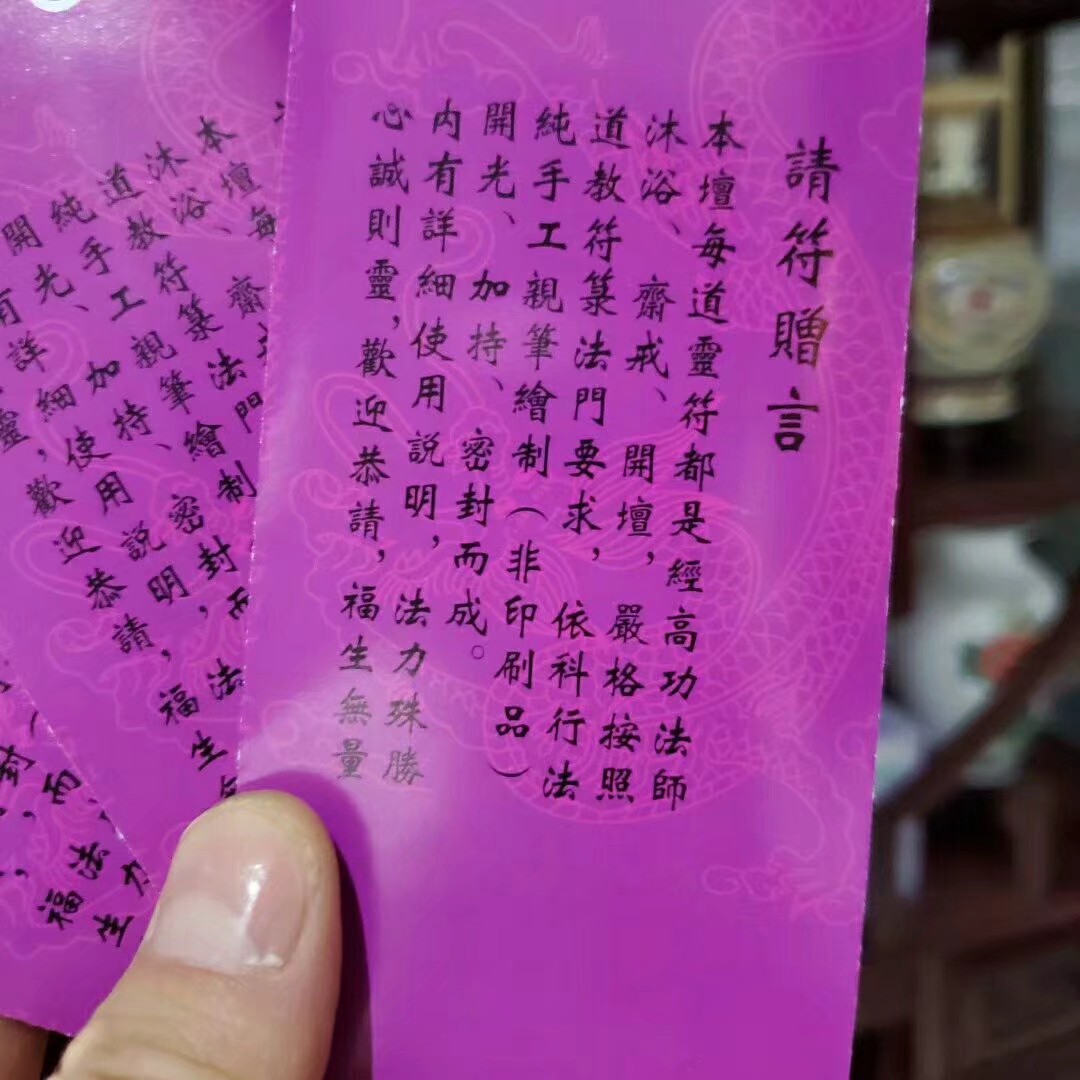 請符贈言
本壇每道靈符都是經高功法師
沐浴、齋戒、開壇，嚴格按照
道教符箓法門要求，依科行法
純手工親筆繪制（非印刷品）
開光、加持、密封而成。
内有詳細使用説明，法力殊勝
心誠則靈，歡迎恭請，福生無量
本壇每
沐浴、齋
道教符箓法門
純手工親筆繪制
開光、加持、密封而
有詳細使用説明，法
靈，歡迎恭請，福生
封而
法力
福生